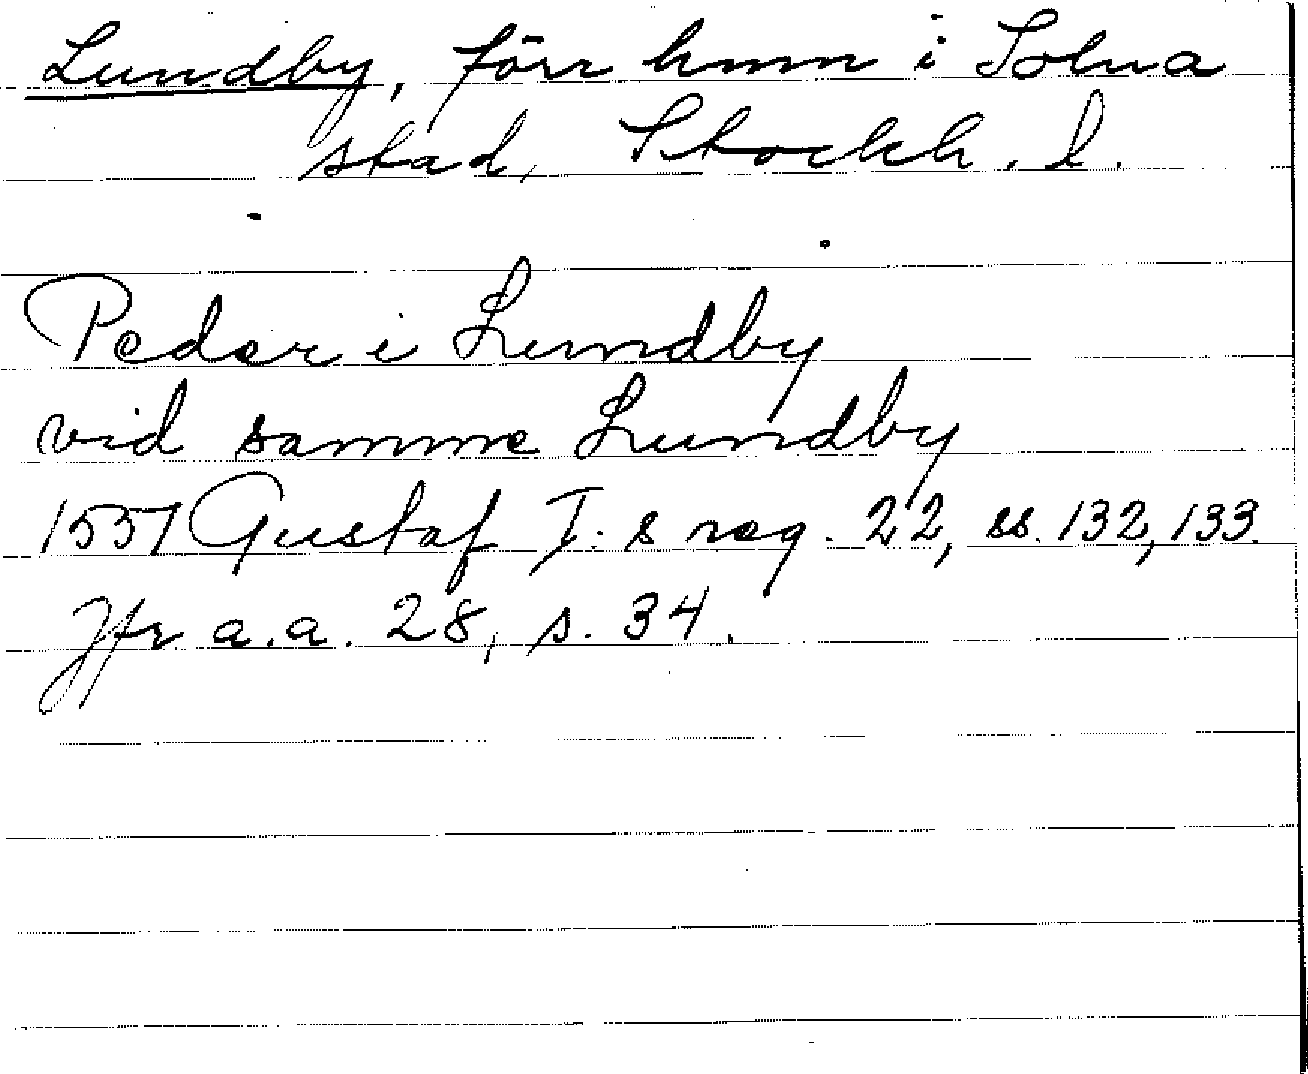 Lundby, förr hmn i Solna
stad, Stockh. l.
Peder i Lundby
vid samme Lundby
1551 Gustaf I:s reg. 22, ss. 132, 133.
Jfr a.a. 28, s. 34.